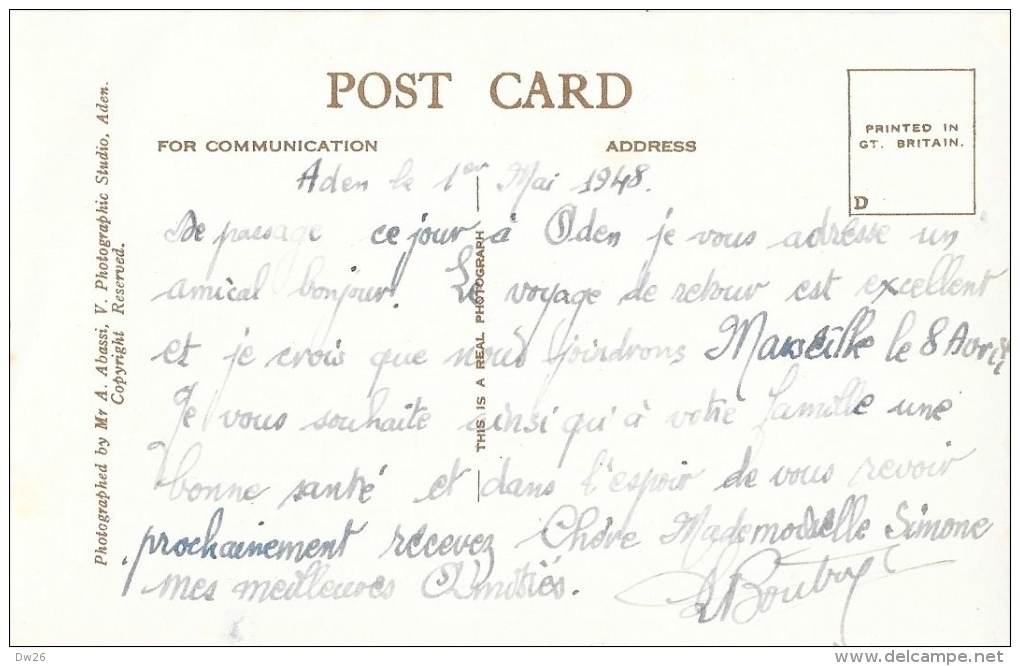 POST CARD
FOR COMMUNICATION
ADDRESS
PRINTED IN
GT. BRITAIN.
D
Photographed by Mr A. Abassi, V. Photographic Studio, Aden.
Copyright Reserved.
THIS IS A REAL PHOTOGRAPH
Aden le 1er Mai 1948.
De passage ce jour à Aden je vous adresse un
amical bonjour. Le voyage de retour est excellent
et je crois que nous joindrons Marseille le 8 Avril
Je vous souhaite ainsi qu'à votre famille une
bonne santé et dans l'espoir de vous revoir
prochainement recevez Chère Mademoiselle Simone
mes meilleures Amitiés.
Dw26
www.delcampe.net